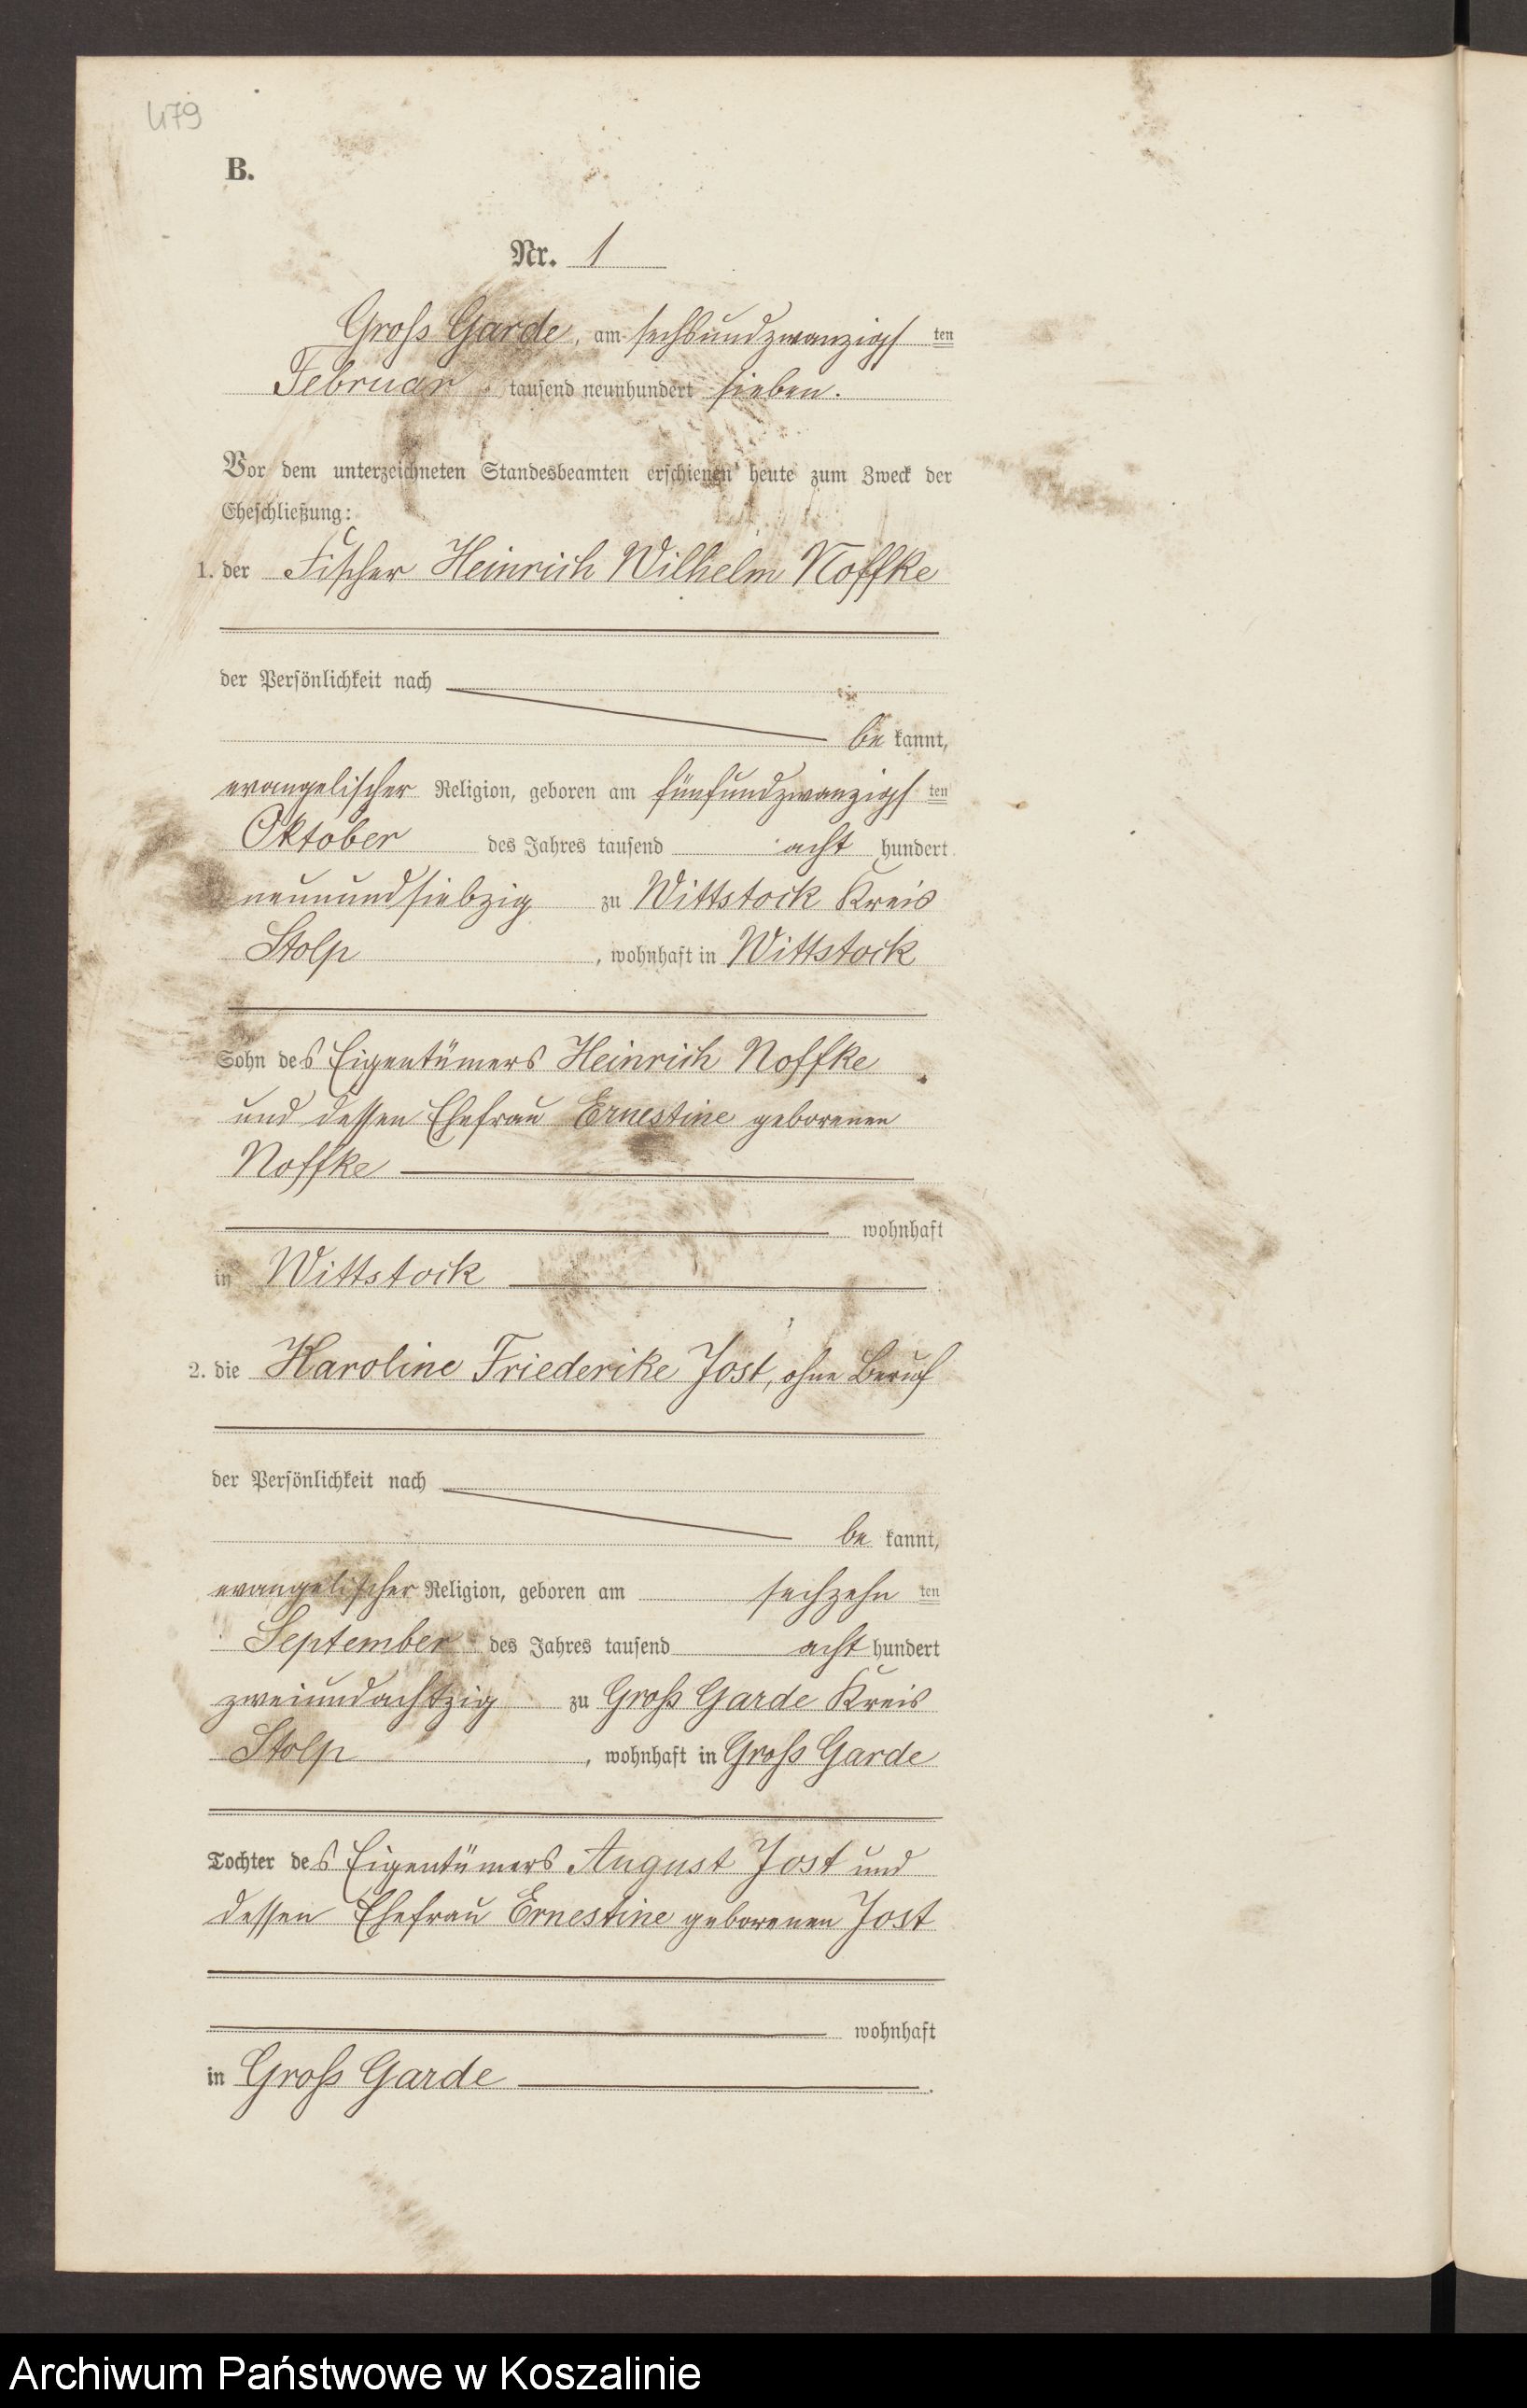 479
B.
Nr. 1
Groß Garde, am sechsundzwanzigsten
Februar tausend neunhundert sieben.
Vor dem unterzeichneten Standesbeamten erschienen heute zum Zweck der
Eheschließung:
1. der Fischer Heinrich Wilhelm Noffke
der Persönlichkeit nach
be kannt,
evangelischer Religion, geboren am fünfundzwanzigsten
Oktober des Jahres tausend acht hundert
neunundsiebzig zu Wittstock Kreis
Stolp, wohnhaft in Wittstock
Sohn des Eigentümers Heinrich Noffke
und dessen Ehefrau Ernestine geborenen
Noffke
wohnhaft
in Wittstock
2. die Karoline Friederike Jost, ohne Beruf
der Persönlichkeit nach
be kannt,
evangelischer Religion, geboren am sechzehn ten
September des Jahres tausend acht hundert
zweiundachtzig zu Groß Garde Kreis
Stolp, wohnhaft in Groß Garde
Tochter des Eigentümers August Jost und
dessen Ehefrau Ernestine geborenen Jost
wohnhaft
in Groß Garde
Archiwum Państwowe w Koszalinie